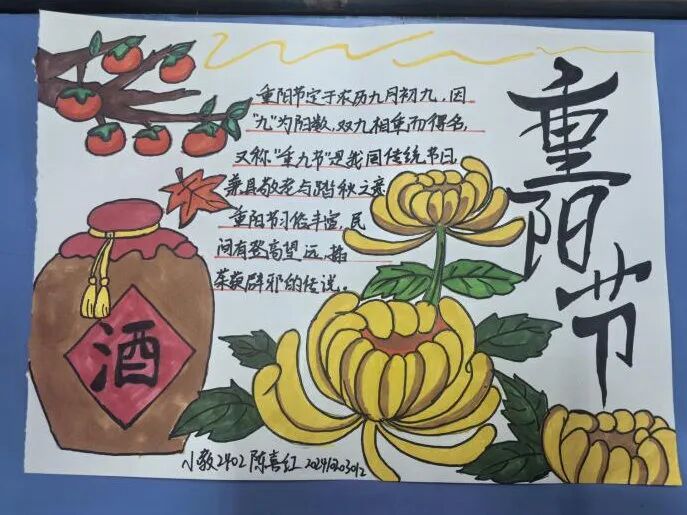 重阳节
重阳节定于农历九月初九，因
"九"为阳数，双九相重而得名，
又称"重九节"是我国传统节日，
兼具敬老与踏秋之意
重阳节习俗丰富，民
间有登高望远、插
茱萸辟邪的传说。
酒
小教2402 陈喜红